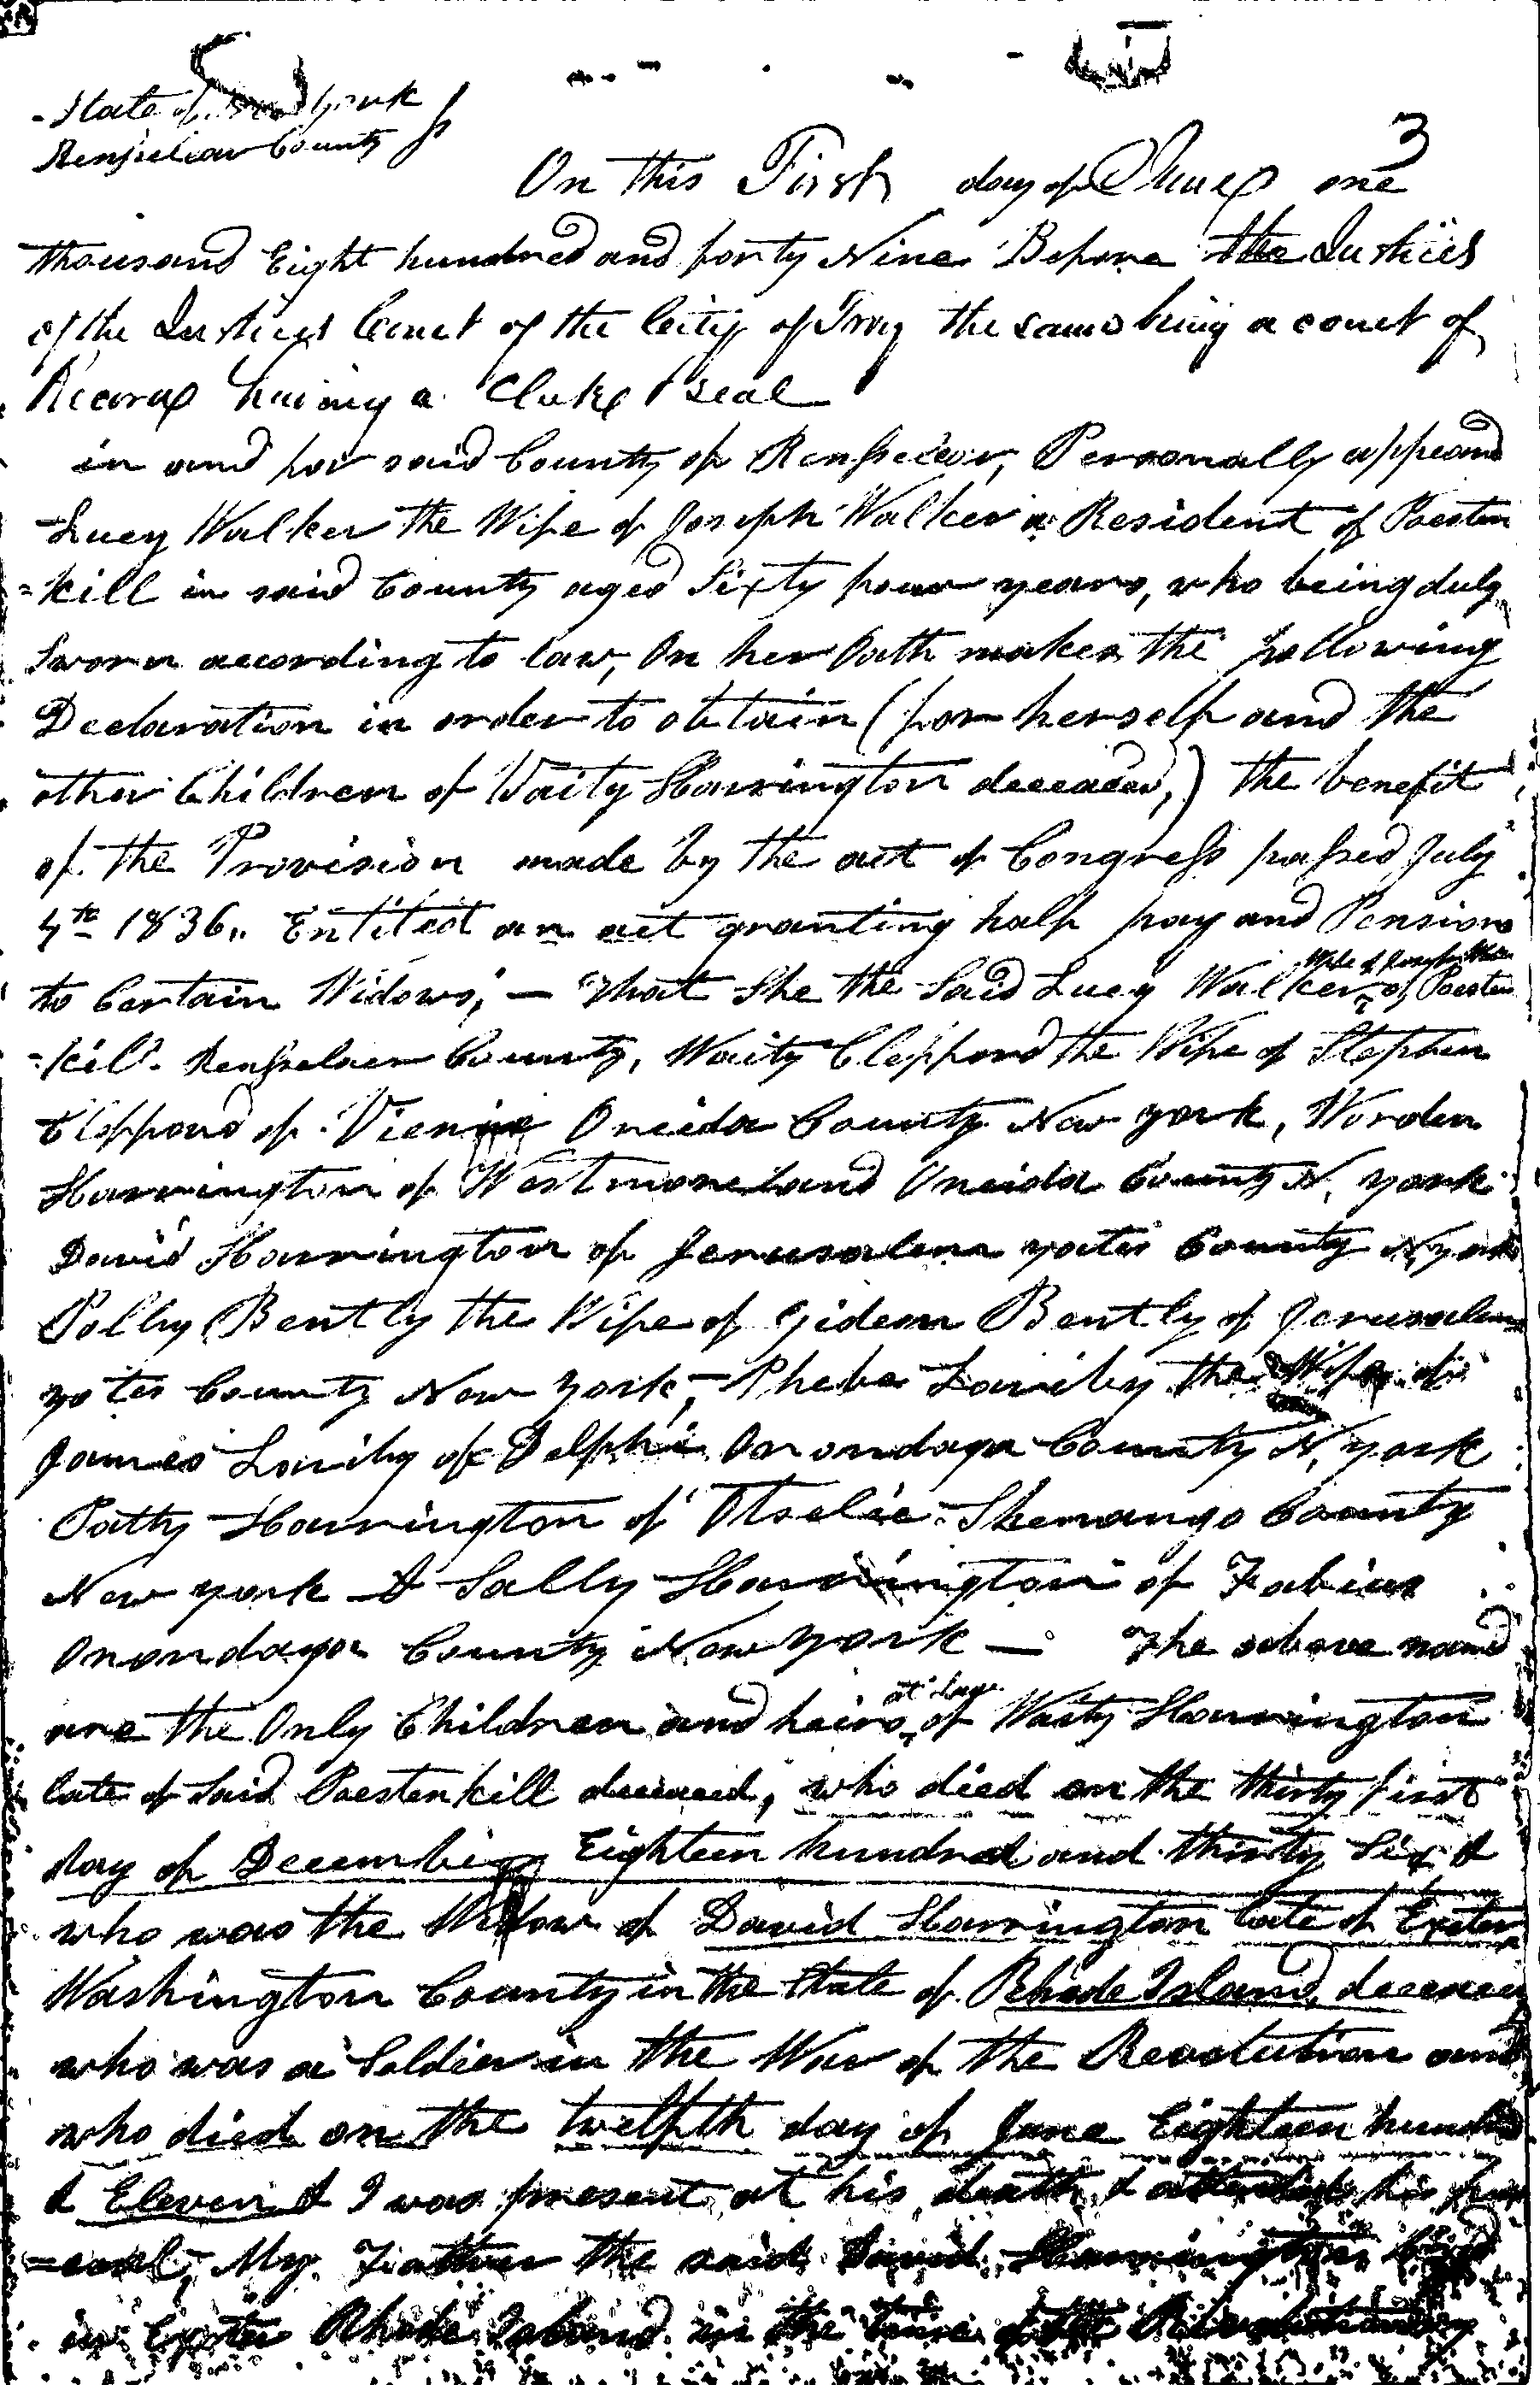 State of New York
Rensselaer County } ss
3
On this First day of June one
thousand Eight hundred and forty Nine Before the Justices
of the Justices Court of the City of Troy the same being a court of
Record having a Clerk & seal
in and for said County of Rensselaer, Personally appeared
Lucy Walker the Wife of Joseph Walker a Resident of Poesten
=kill in said County aged Sixty four years, who being duly
Sworn according to law, On her Oath makes the following
Declaration in order to obtain (for herself and the
other Children of Waity Harrington deceased,) the benefit
of the Provision made by the act of Congress passed July
4th 1836,, Entitled an act granting half pay and Pensions
to Certain Widows; — That She the Said Lucy Walker wife of Joseph Walker of Poesten
=kill. Rensselaer County, Waity Clefford the Wife of Stephen
Clefford of Vienna Oneida County New York, Worden
Harrington of Westmoreland Oneida County N, York
David Harrington of Jerusalem yates County N, York
Polly Bently the Wife of Gideon Bently of Jerusalem
yates County New York, Phebe the Wife of
James of Delphi Onondaga County N, York
Patty Harrington of Otselic Shenango County
New york & Sally Harrington of Fabius
Onondaga County New York — The above named
are the Only Children and heirs at Law of Waity Harrington
late of Said Poestenkill deceased, who died on the thirty first
day of December Eighteen hundred and thirty Six &
who was the Widow of David Harrington late of Exeter
Washington County in the State of Rhode Island, deceased
who was a Soldier in the War of the Revolution and
who died on the twelfth day of June Eighteen hundred
& Eleven & I was present at his death & attended his fun
=eral, My Father the said David Harrington lived
in Exeter Rhode Island in the time of the Revolutionary